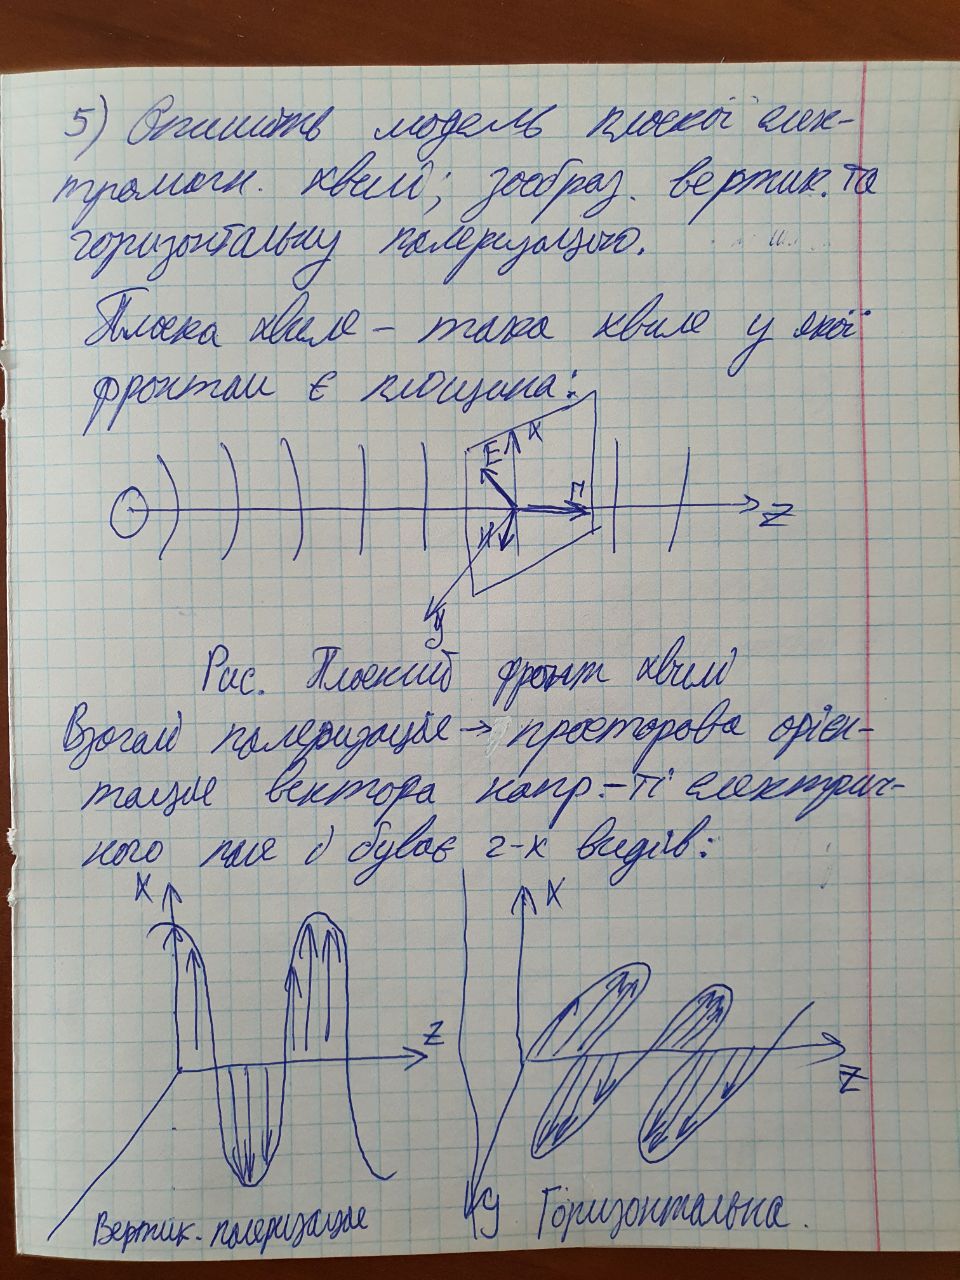 5) Опишіть модель плоскої елек-
тромагн. хвилі; зобраз. вертик. та
горизонтальну поляризацію.
Плоска хвиля – така хвиля у якої
фронтом є площина:
E X П
H Z
y
Рис. Плоский фронт хвилі
Взагалі поляризація → просторова орієн-
тація вектора напр-ті електрич-
ного поля і буває 2-х видів:
X X
Z
Z
y
Вертик. поляризація Горизонтальна.